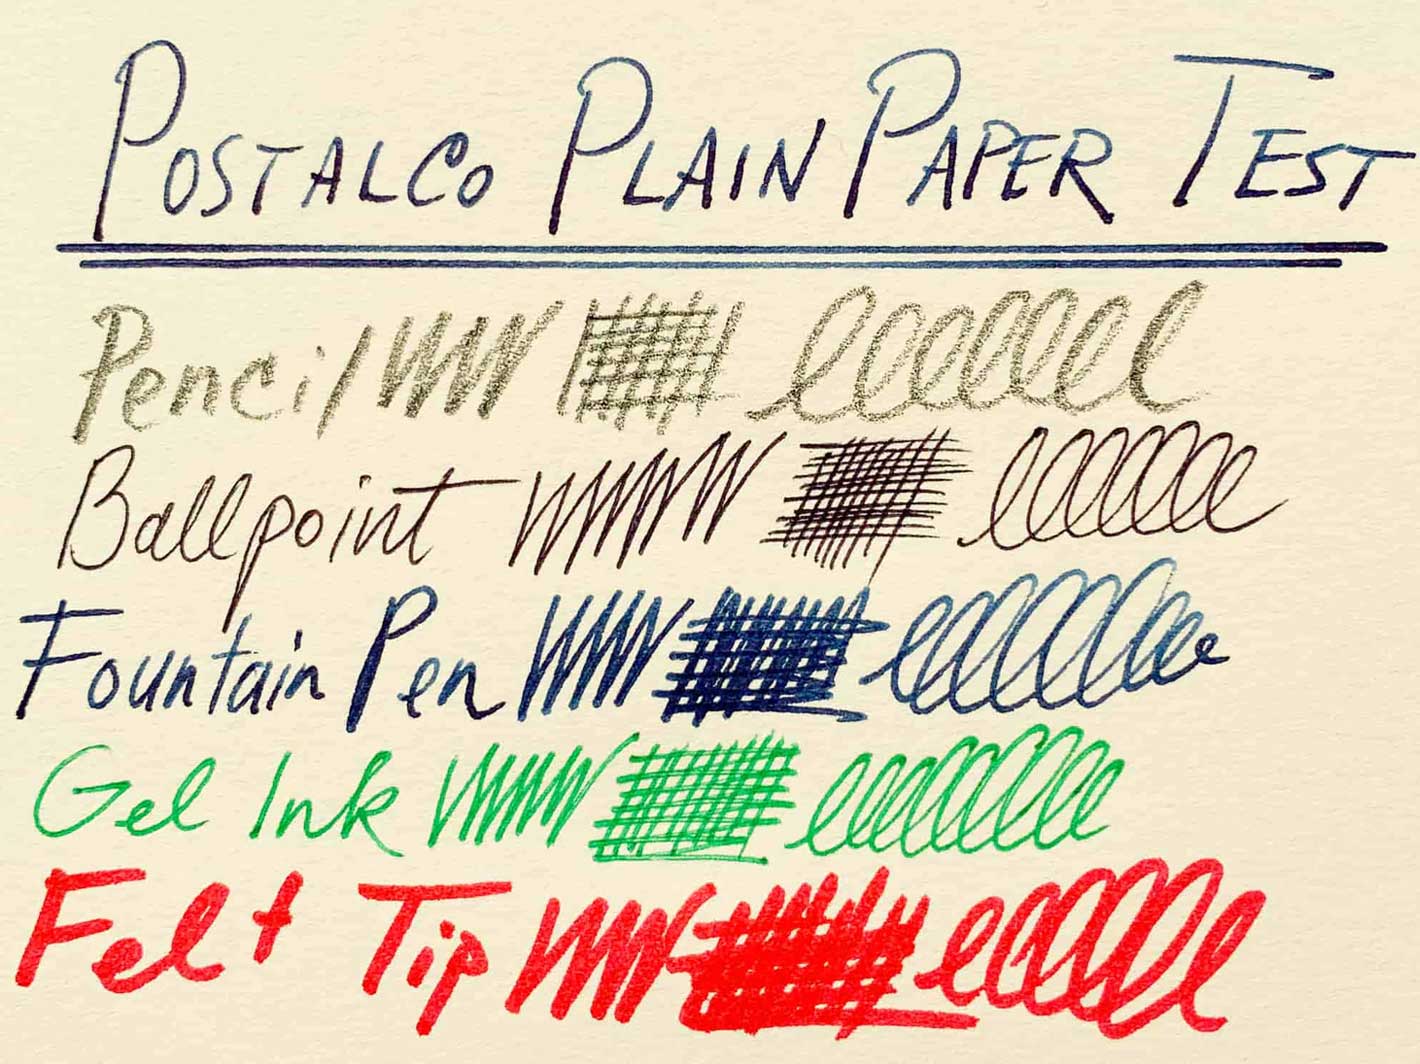 POSTALCO PLAIN PAPER TEST
Pencil
Ballpoint
Fountain Pen
Gel Ink
Felt Tip